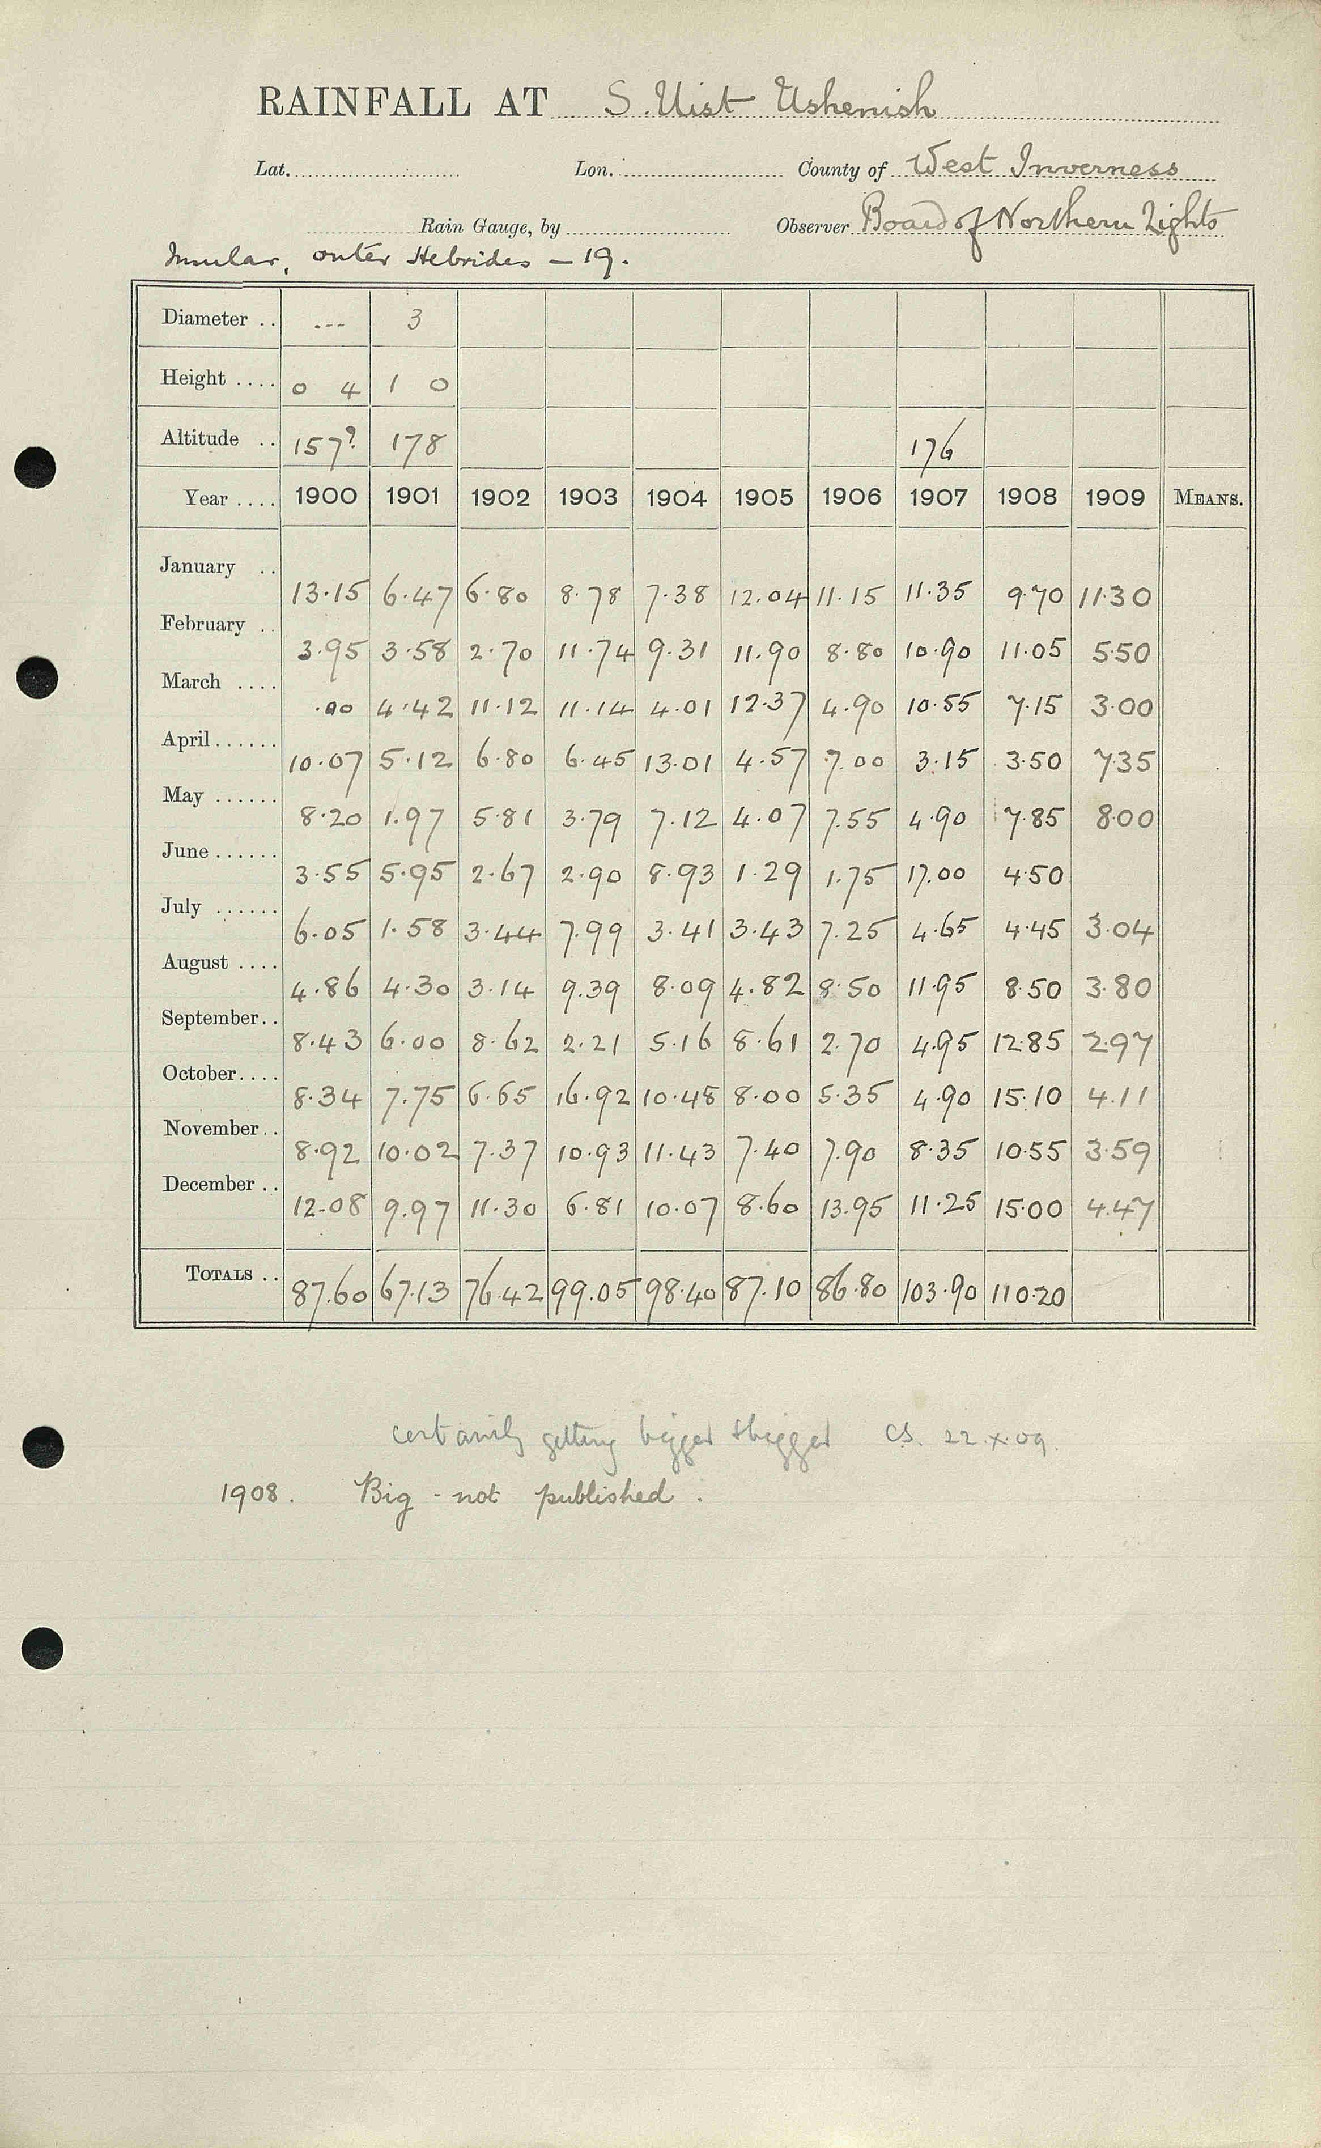 RAINFALL AT S. Uist Ushenish
Lat. Lon. County of West Inverness
Rain Gauge, by Observer Board of Northern Lights
Insular, outer Hebrides – 19.
Diameter .. --- 3
Height .... 0 4 1 0
Altitude .. 157? 178 176
Year .... 1900 1901 1902 1903 1904 1905 1906 1907 1908 1909 MEANS.
January .. 13.15 6.47 6.80 8.78 7.38 12.04 11.15 11.35 9.70 11.30
February .. 3.95 3.58 2.70 11.74 9.31 11.90 8.80 10.90 11.05 5.50
March .... .00 4.42 11.12 11.14 4.01 12.37 4.90 10.55 7.15 3.00
April...... 10.07 5.12 6.80 6.45 13.01 4.57 7.00 3.15 3.50 7.35
May ...... 8.20 1.97 5.81 3.79 7.12 4.07 7.55 4.90 7.85 8.00
June...... 3.55 5.95 2.67 2.90 8.93 1.29 1.75 17.00 4.50
July ...... 6.05 1.58 3.44 7.99 3.41 3.43 7.25 4.65 4.45 3.04
August .... 4.86 4.30 3.14 9.39 8.09 4.82 8.50 11.95 8.50 3.80
September.. 8.43 6.00 8.62 2.21 5.16 8.61 2.70 4.95 12.85 2.97
October.... 8.34 7.75 6.65 16.92 10.48 8.00 5.35 4.90 15.10 4.11
November.. 8.92 10.02 7.37 10.93 11.43 7.40 7.90 8.35 10.55 3.59
December .. 12.08 9.97 11.30 6.81 10.07 8.60 13.95 11.25 15.00 4.47
TOTALS .. 87.60 67.13 76.42 99.05 98.40 87.10 86.80 103.90 110.20
certainly getting bigger & bigger CS. 22.x.09
1908. Big - not published.